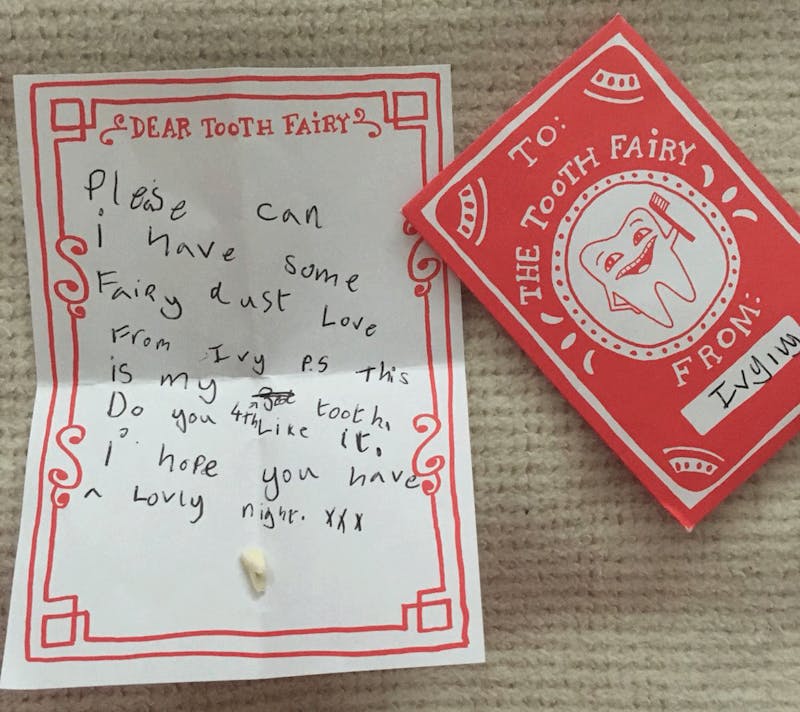 DEAR TOOTH FAIRY
Please can
i have some
Fairy dust Love
From Ivy P.S This
is my 4th tooth,
Do you Like it.
i hope you have
a Lovly night. xxx
TO:
THE TOOTH FAIRY
FROM: